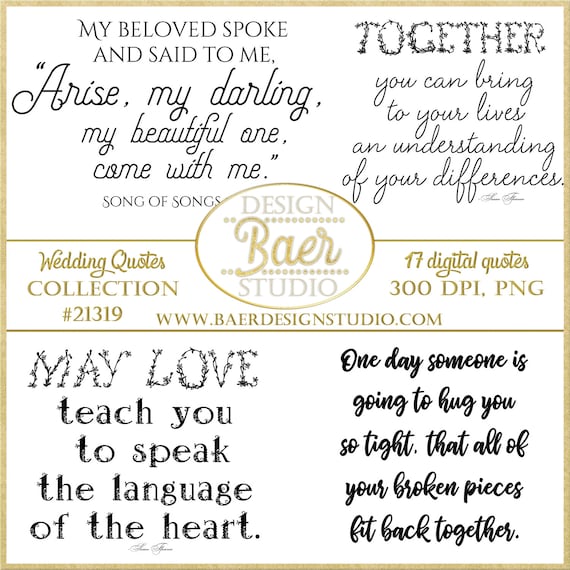 My beloved spoke
and said to me,
“Arise, my darling,
my beautiful one,
come with me.”
Song of Songs
TOGETHER
you can bring
to your lives
an understanding
of your differences.
DESIGN
Baer
STUDIO
Wedding Quotes
COLLECTION
#21319
17 digital quotes
300 DPI, PNG
WWW.BAERDESIGNSTUDIO.COM
MAY LOVE
teach you
to speak
the language
of the heart.
One day someone is
going to hug you
so tight, that all of
your broken pieces
fit back together.